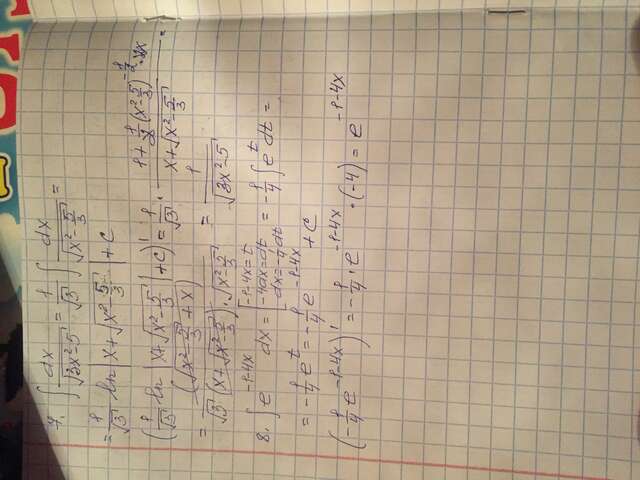 7. ∫ dx/√(3x²-5) = 1/√3 ∫ dx/√(x²-5/3) =
= 1/√3 ln |x+√(x²-5/3)| + C
(1/√3 ln |x+√(x²-5/3)| + C)' = 1/√3 · (1+1/2(x²-5/3)^(-1/2)·2x)/(x+√(x²-5/3)) =
= (√(x²-5/3)+x)/(√3(x+√(x²-5/3))·√(x²-5/3)) = 1/√(3x²-5)
8. ∫ e^(-1-4x) dx = |-1-4x=t -4dx=dt dx=-1/4dt| = -1/4 ∫ e^t dt =
= -1/4 e^t = -1/4 e^(-1-4x) + C
(-1/4 e^(-1-4x))' = -1/4 · e^(-1-4x) · (-4) = e^(-1-4x)